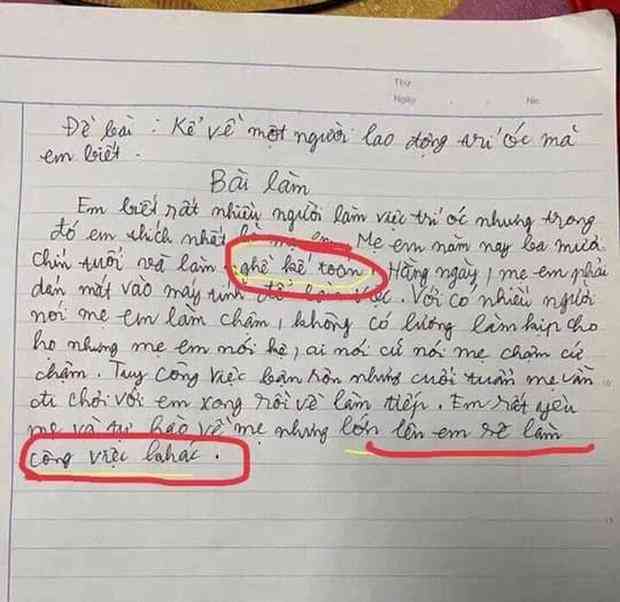 Thứ
Ngày
No:
Đề bài : Kể về một người lao động trí óc mà
em biết.
Bài làm
Em biết rất nhiều người làm việc trí óc nhưng trong
đó em thích nhất là mẹ em. Mẹ em năm nay ba mươi
chín tuổi và làm nghề kế toán. Hằng ngày, mẹ em phải
dán mắt vào máy tính để làm việc. Với có nhiều người
nói mẹ em làm chậm, không có lương làm kịp cho
họ nhưng mẹ em nói kệ, ai nói cứ nói mẹ chậm cứ
chậm. Tuy công việc bận rộn nhưng cuối tuần mẹ vẫn
đi chơi với em xong rồi về làm tiếp. Em rất yêu
mẹ và tự hào về mẹ nhưng lớn lên em sẽ làm
công việc khác.